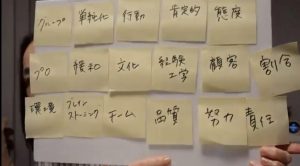 グループ 単純化 行動 肯定的 態度
プロ 緩和 文化 経験工学 顧客 割合
環境 ブレインストーミング チーム 品質 努力 責任